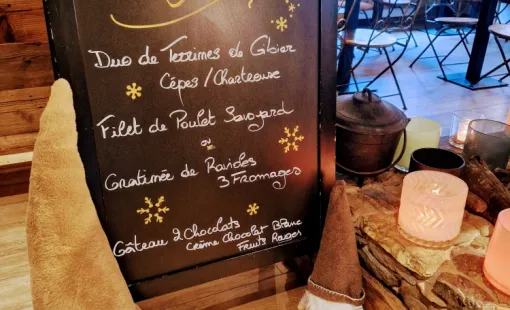 Duo de Terrines de Gibier
Cèpes / Chartreuse
Filet de Poulet Savoyard
ou
Gratinée de Ravioles
3 Fromages
Gâteau 2 Chocolats
Crème Chocolat Blanc
Fruits Rouges